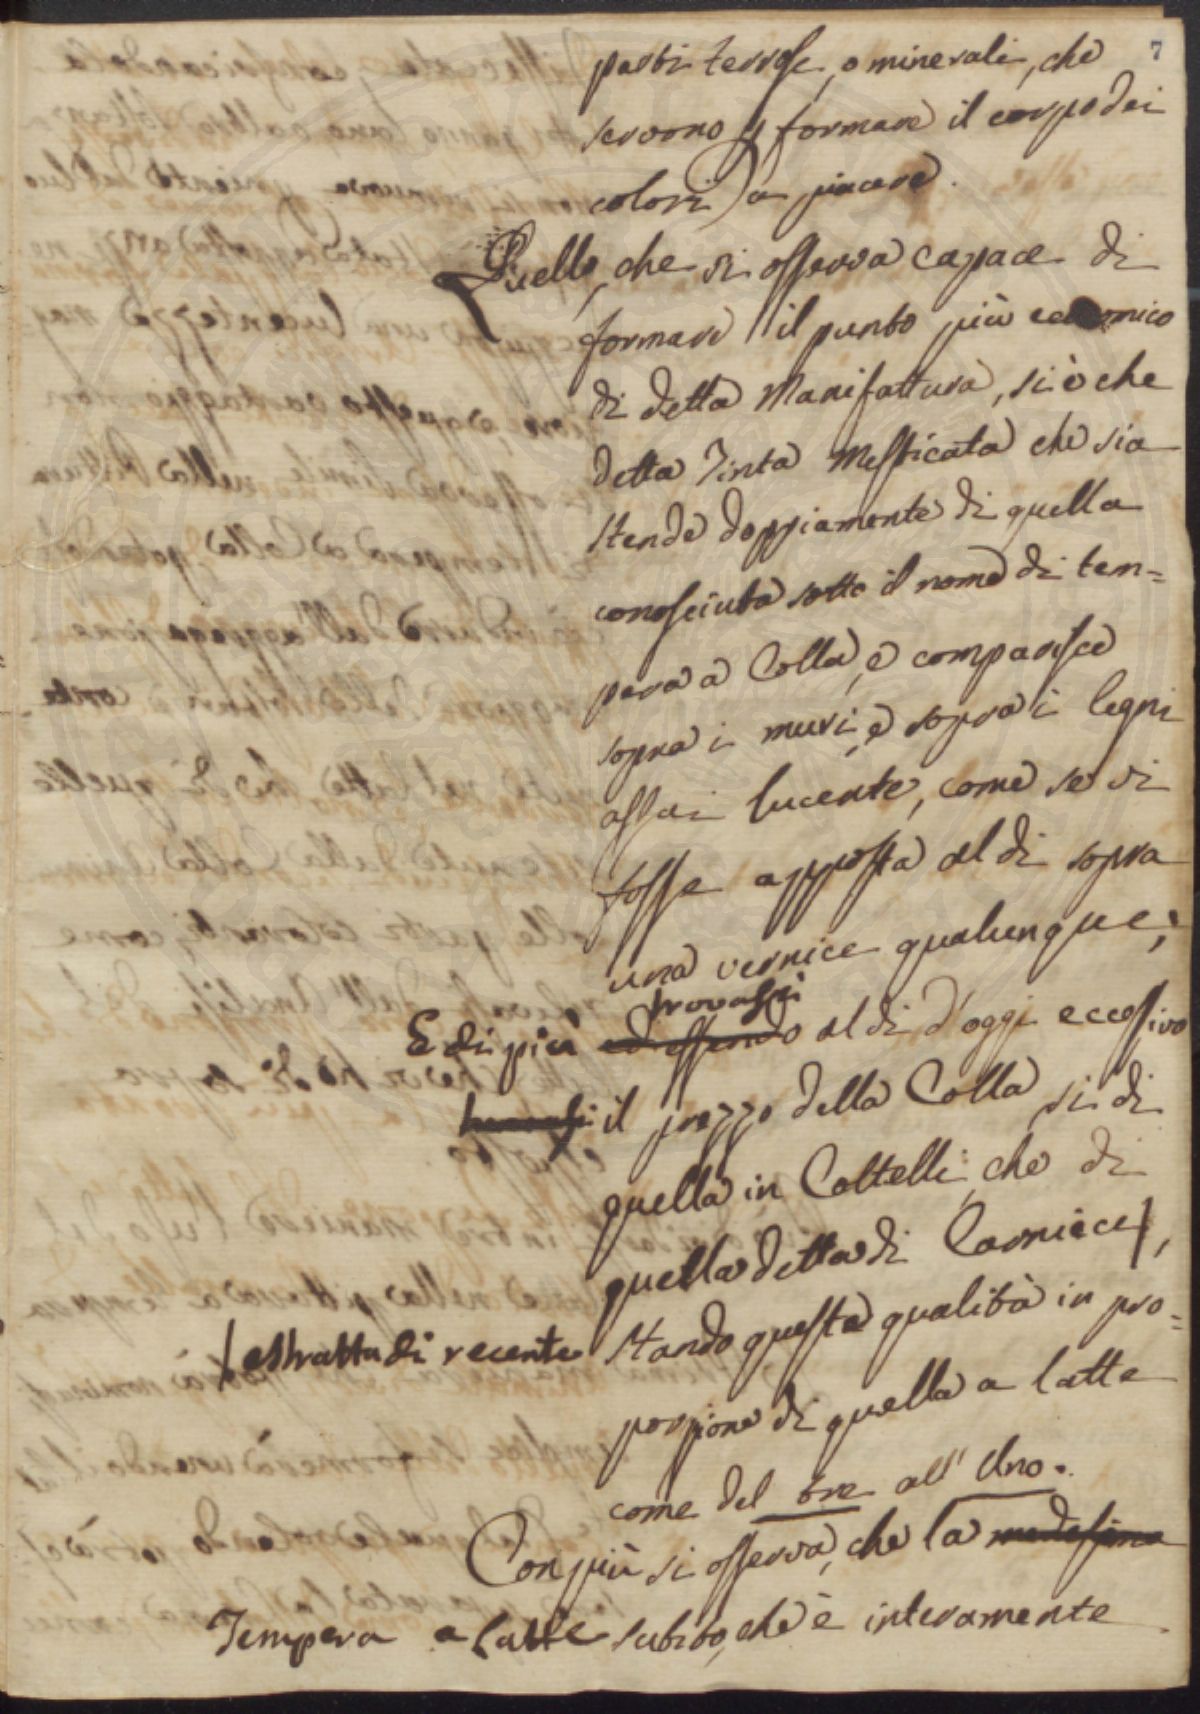 7
parti terrose, o minerali, che
servono p formare il corpo dei
colori) a piacere.
Quello, che si osserva capace di
formare il punto più economico
di detta Manifattura, si è che
detta Tinta Mesticata che sia
stende doppiamente di quella
conosciuta sotto il nome di tem=
pera a Colla, e comparisce
sopra i muri, e sopra i legni
assai lucente, come se vi
fosse apposta al di sopra
una vernice qualunque;
trovasi
E di più ed essendo al di d'oggi eccessivo
il prezzo della Colla, si di
quella in Coltelli, che di
quella detta di Carniccel,
estratta di recente stando questa qualità in pro=
porzione di quella a latte
come del tre all'Uno.
Con più si osserva, che la medesima
Tempera a latte subito, che è interamente